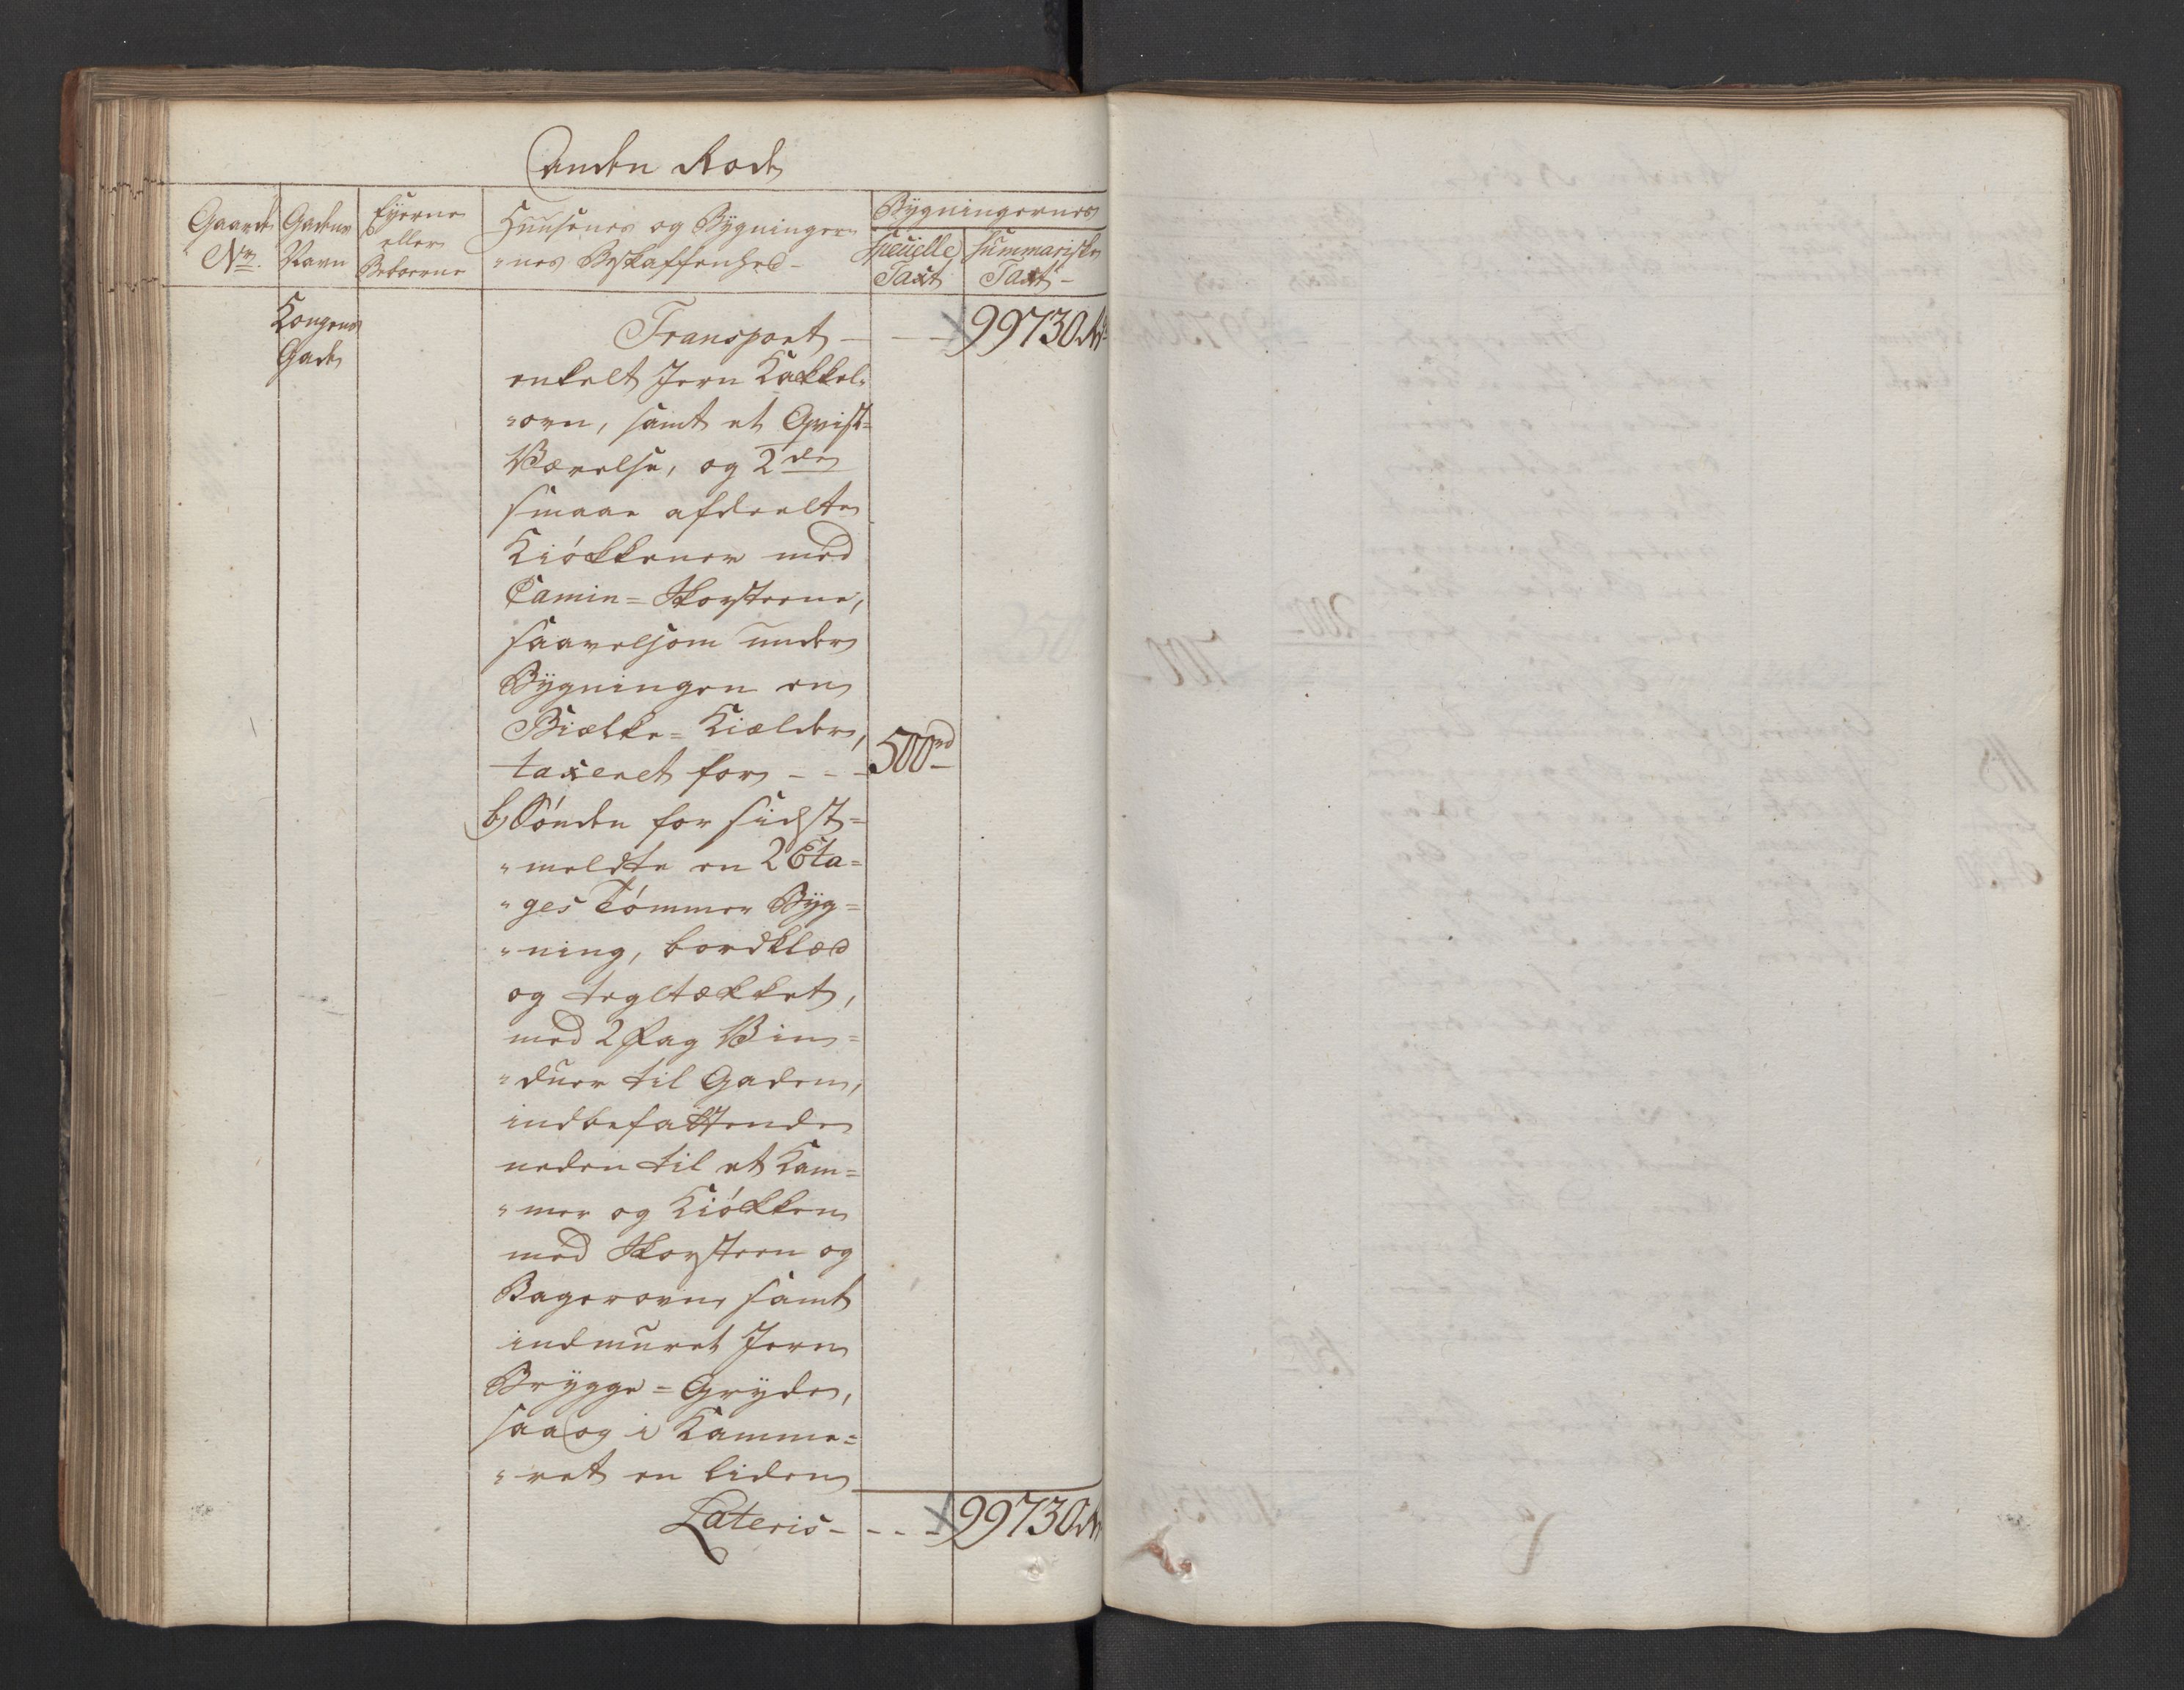 Anden Rode
Gaards Nr.
Gadens Navn
Ejerne eller Beboerne
Huusenes og Bygninger-
"nes Beskaffenhed-
Bygningernes
Specielle Taxt
Summariske Taxt-
Kongens
Gade
Transport - - - 99730 rdr
enkelt Jern Kakkel-
"ovn, samt et Qvist=
Værelse, og 2de
smaae afdeelte
Kiökkener med
Camin= Skorsteene,
saavelsom under
Bygningen en
Bielke= Kielder,
taxeret for - - - 500rd
b) Sönden for sidst=
"meldte en 2 Eta=
"ges Tömmer Byg=
"ning, bordklæd
og tegltækket,
med 2 Fag Vin=
"duer til Gaden,
indbefattende
neden til et Kam=
"mer og Kiökken
med Skorsteen og
Bagerovn, samt
indmuret Jern
Brygge= Gryde,
saa og i Kamme=
"ret en liden
Lateris - - - 99730 rdr